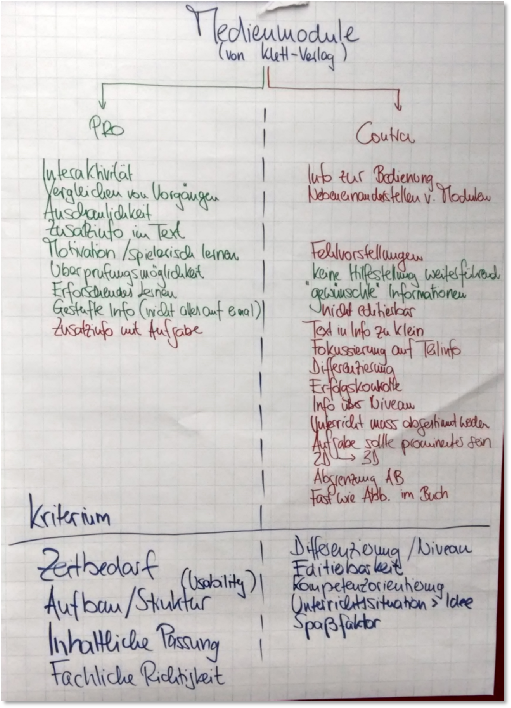 Medienmodule
(von Klett-Verlag)
PRO
Interaktivität
Vergleichen von Vorgängen
Anschaulichkeit
Zusatzinfo im Text
Motivation / spielerisch lernen
Überprüfungsmöglichkeit
Erforschendes Lernen
Gestufte Info (nicht alles auf einmal)
Zusatzinfo mit Aufgabe
Contra
Info zur Bedienung
Nebeneinanderstellen v. Modulen
Fehlvorstellungen
keine Hilfestellung weiterführend
"gewünschte" Informationen
nicht editierbar
Text in Info zu klein
Fokussierung auf Teilinfo
Differenzierung
Erfolgskontrolle
Info über Niveau
Unterricht muss abgestimmt werden
Aufgabe sollte prominenter sein
2D → 3D
Abgrenzung AB
Fast wie Abb. im Buch
Kriterium
Zeitbedarf
Aufbau/Struktur (Usability)
Inhaltliche Passung
Fachliche Richtigkeit
Differenzierung / Niveau
Editierbarkeit
Kompetenzorientierung
Unterrichtssituation > Idee
Spaßfaktor